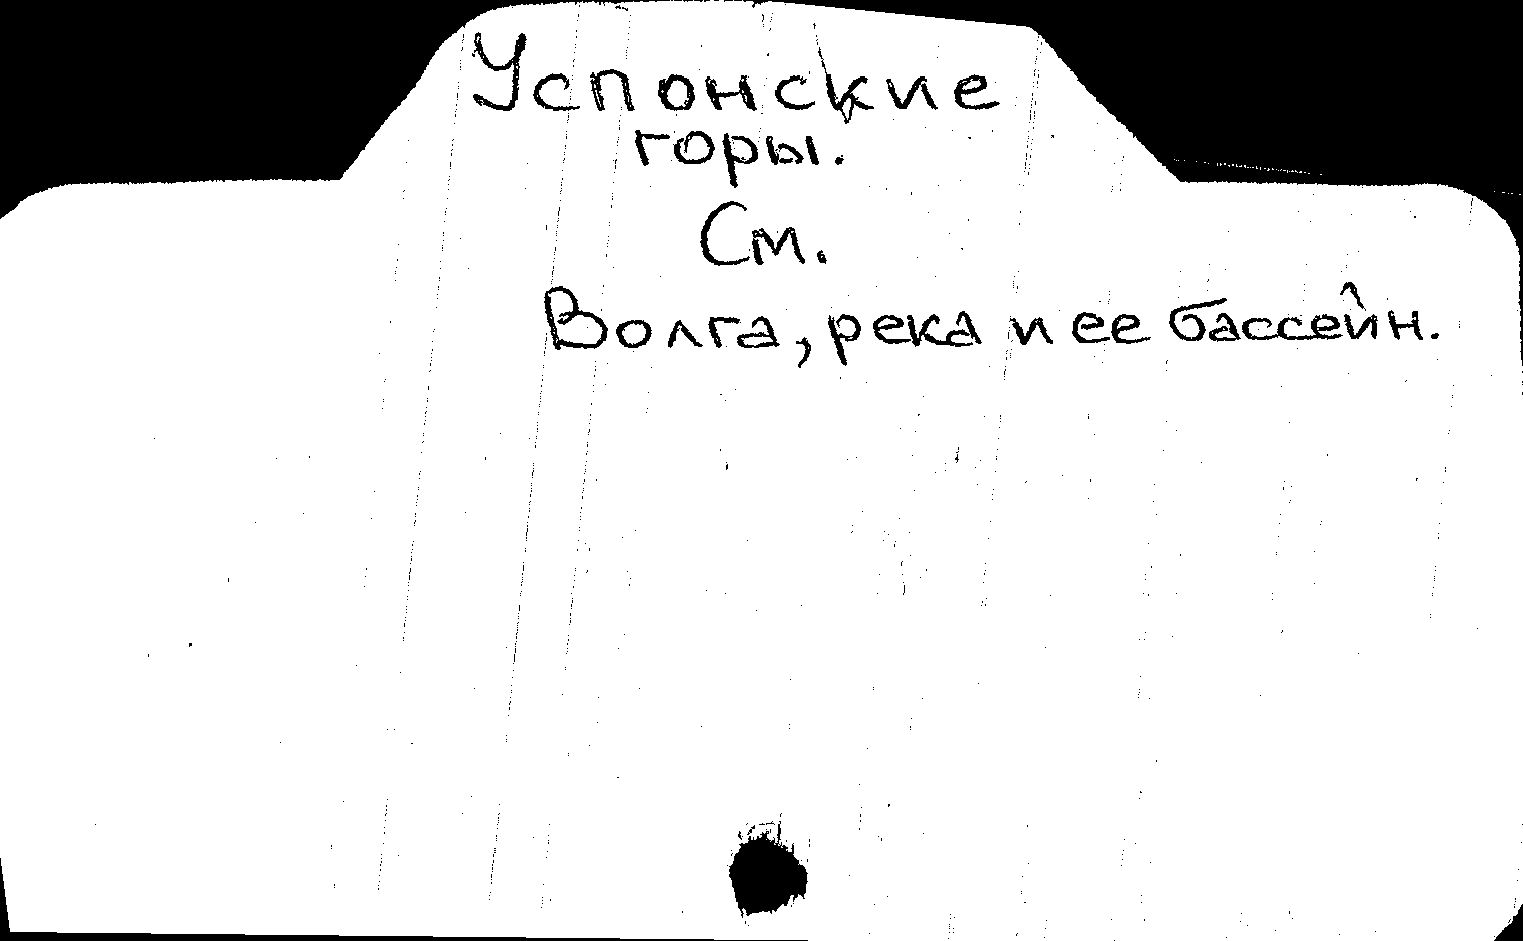 Успонские
горы.
См.
Волга, река и ее бассейн.